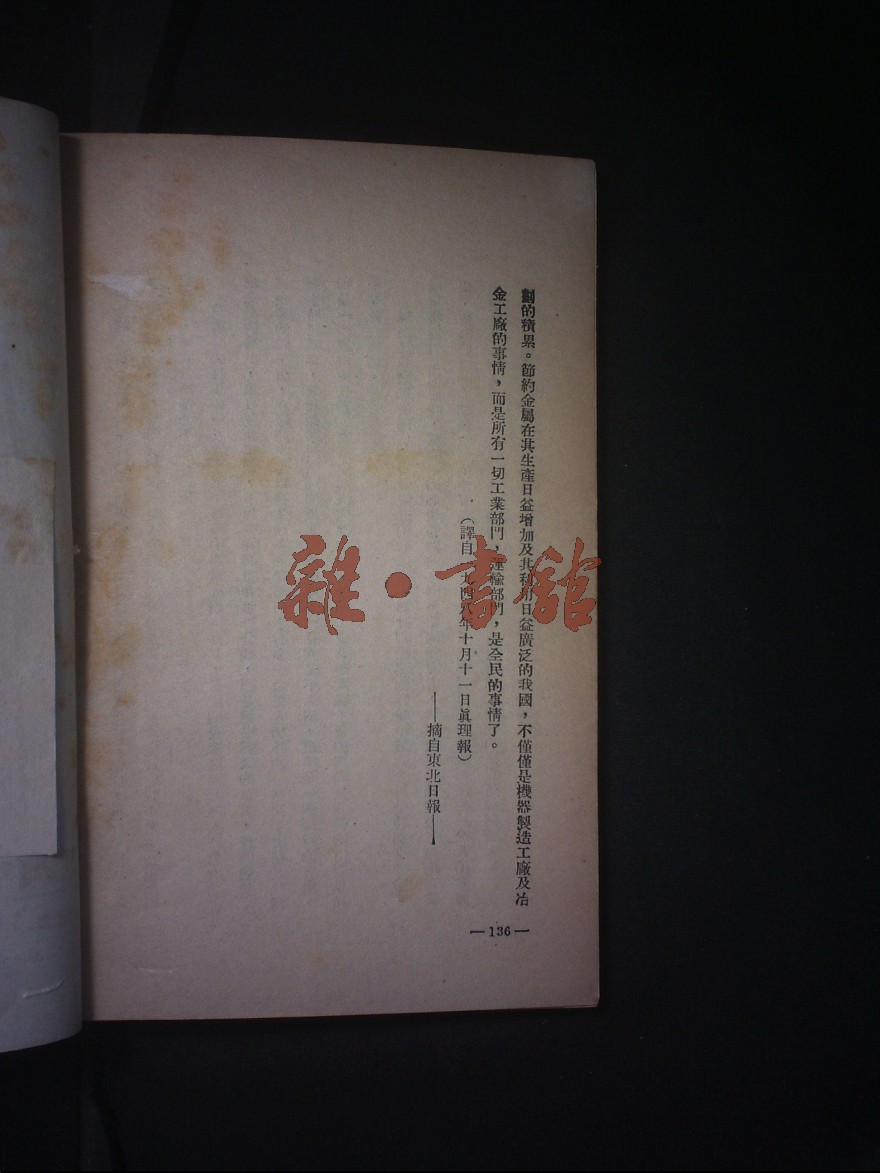 劃的積累。節約金屬在其生產日益增加及其利用日益廣泛的我國，不僅僅是機器製造工廠及冶
金工廠的事情，而是所有一切工業部門，運輸部門，是全民的事情了。
（譯自一九四八年十月十一日眞理報）
——摘自東北日報——
—136—
雜·書館